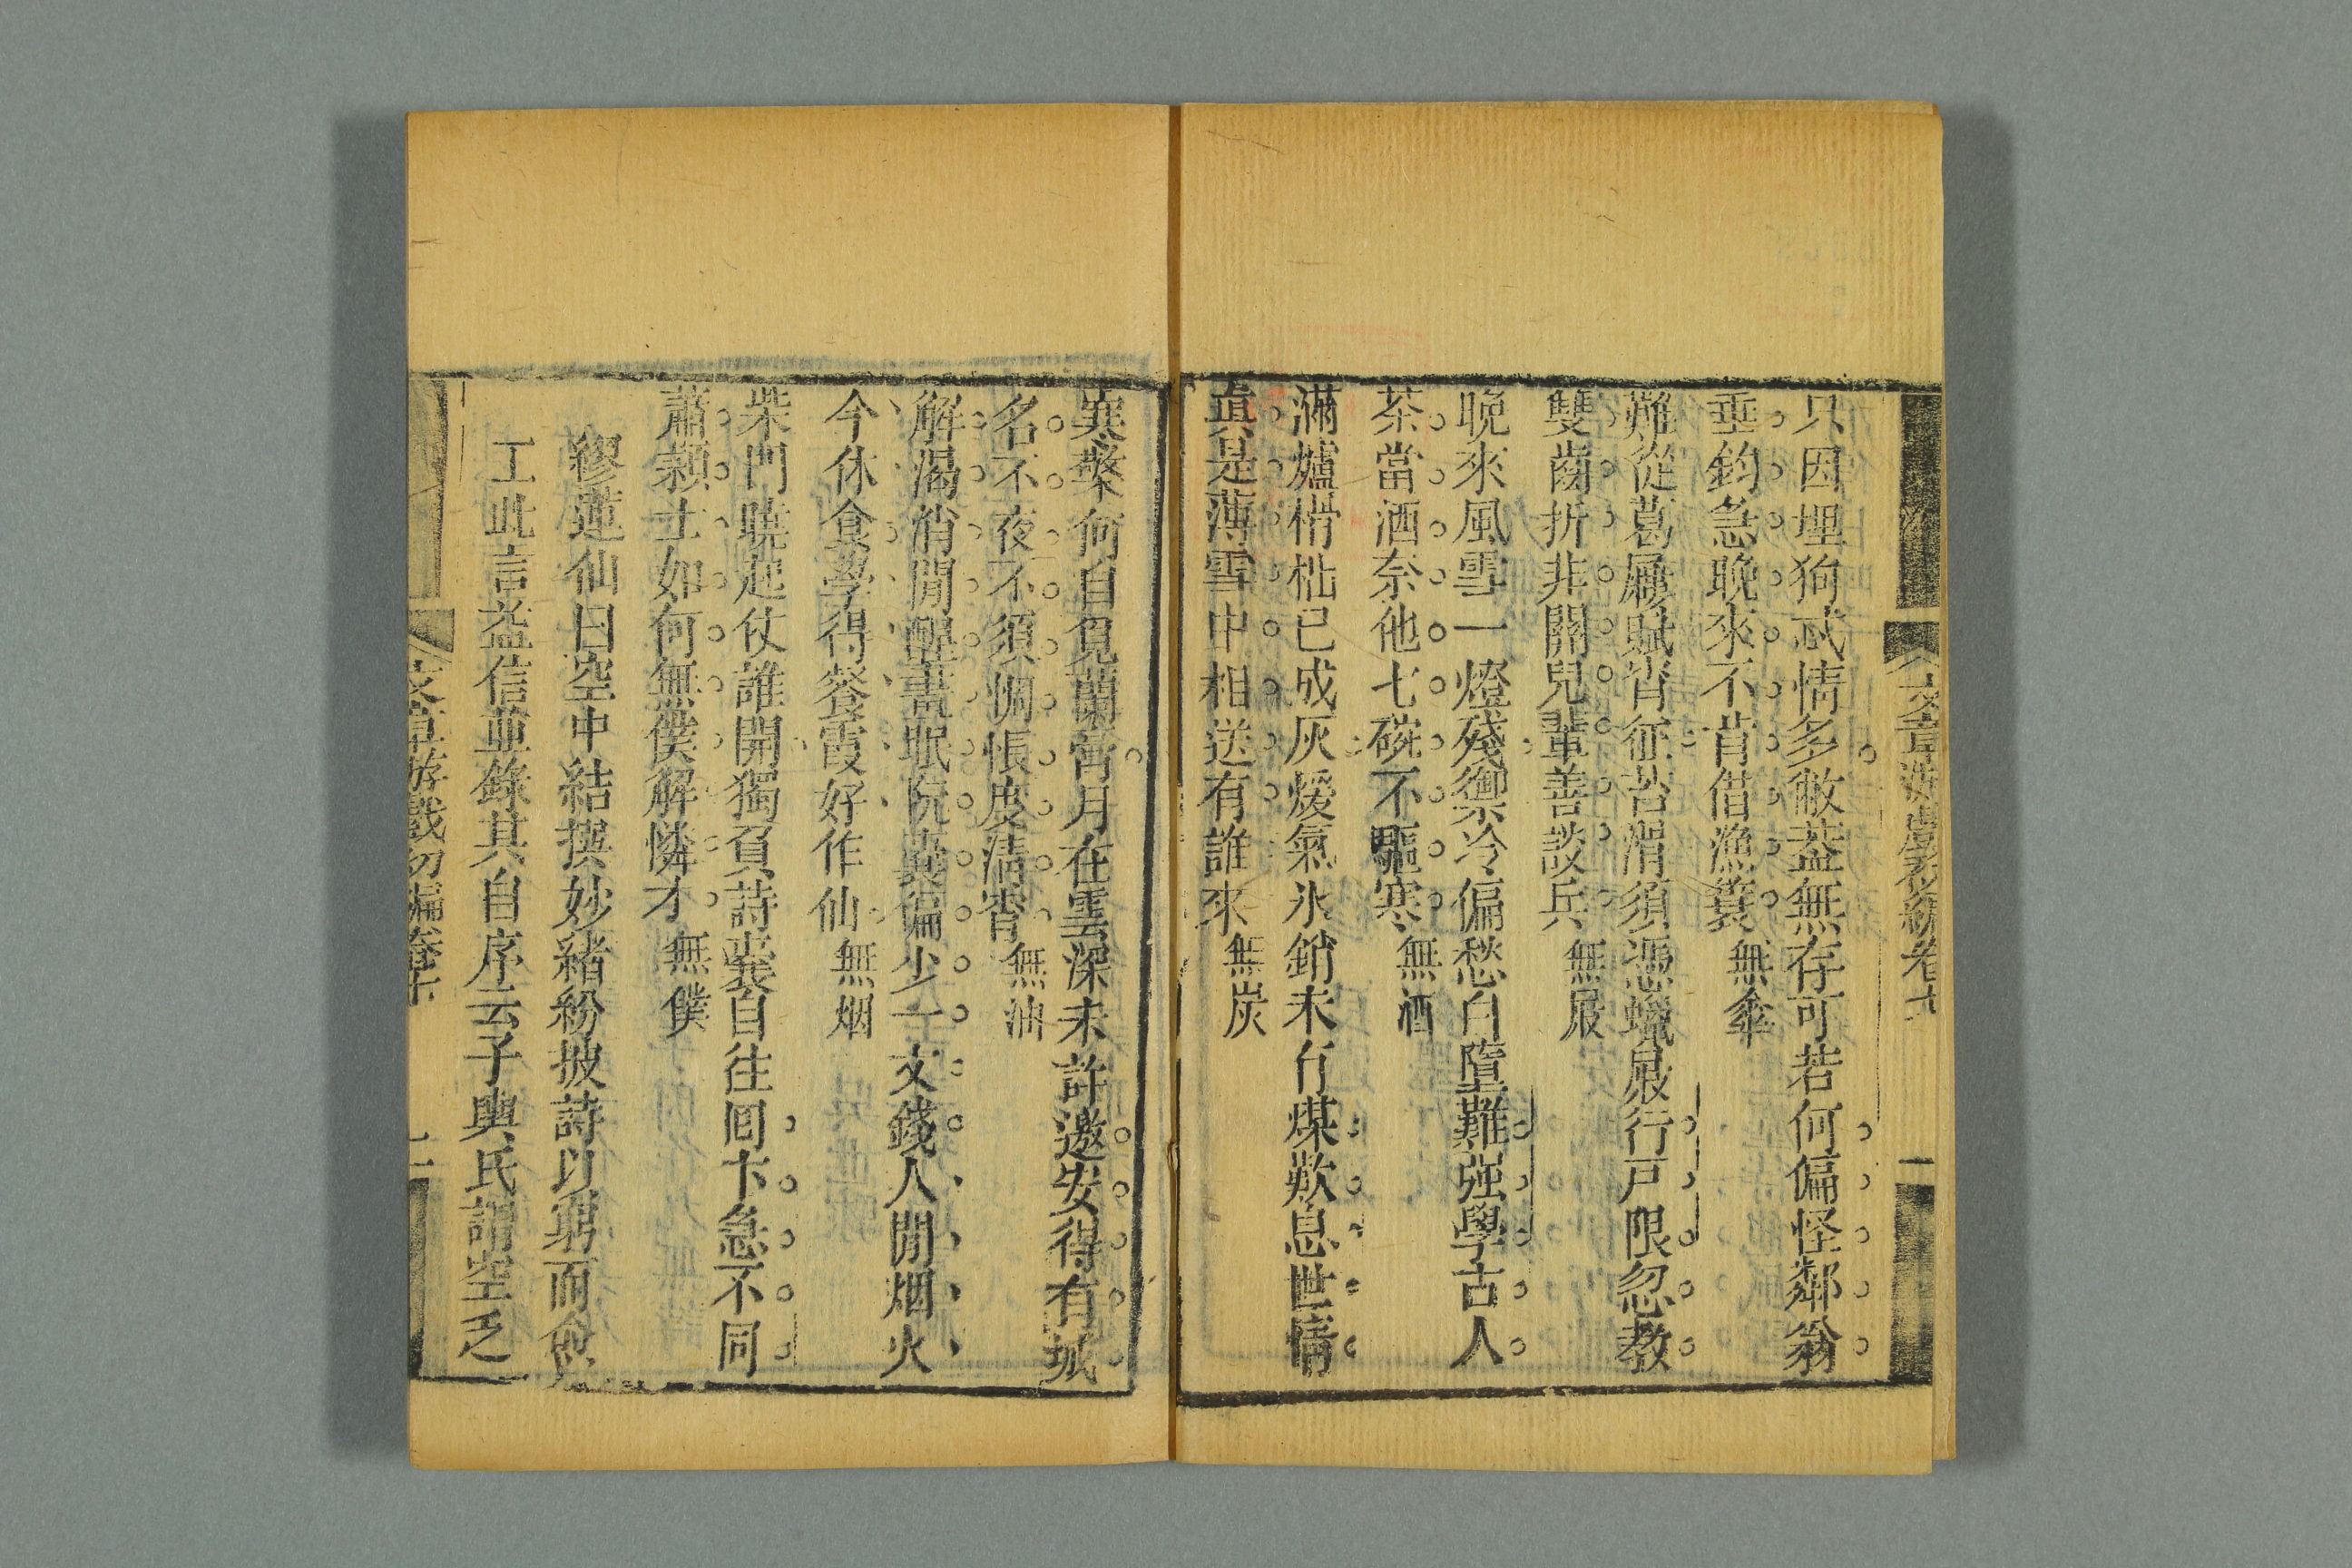 只因埋狗忒情多敝葢無存可若何偏怪鄰翁
垂釣急晚來不肯借漁蓑 無傘
難從葛屨賦宵征苔滑須憑蠟屐行戸限忽教
雙齒折非關兒輩善談兵 無屐
晚來風雪一燈殘禦冷偏愁白墮難强學古人
茶當酒奈他七碗不驅寒 無酒
滿爐榾柮已成灰煖氣氷銷未有煤歎息世情
真是薄雪中相送有誰來 無炭
寒檠何自覓蘭膏月在雲深未許邀安得有城
名不夜不須惆悵度清宵 無油
解渴消閒醒晝眠阮囊偏少一文錢人間烟火
今休食學得餐霞好作仙 無烟
柴門曉起仗誰開獨負詩囊自往囘卞急不同
蕭穎士如何無僕解憐才 無僕
繆蓮仙曰空中結撰妙緒紛披詩以窮而愈
工此言葢信並錄其自序云子輿氏謂空乏
文章游戲初編卷七
文章游戲初編卷七